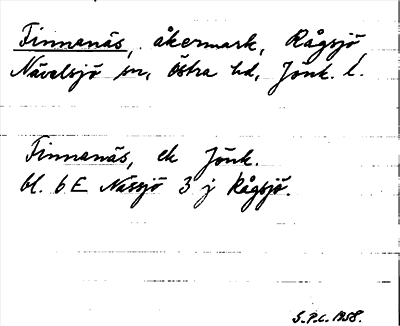 Finnanäs, åkermark, Rågsjö
Nävelsjö sn, östra hd, Jönk. l.
Finnanäs, ek Jönk.
bl. 6E Nässjö 3 j Rågsjö.
S.P.C. 1958.